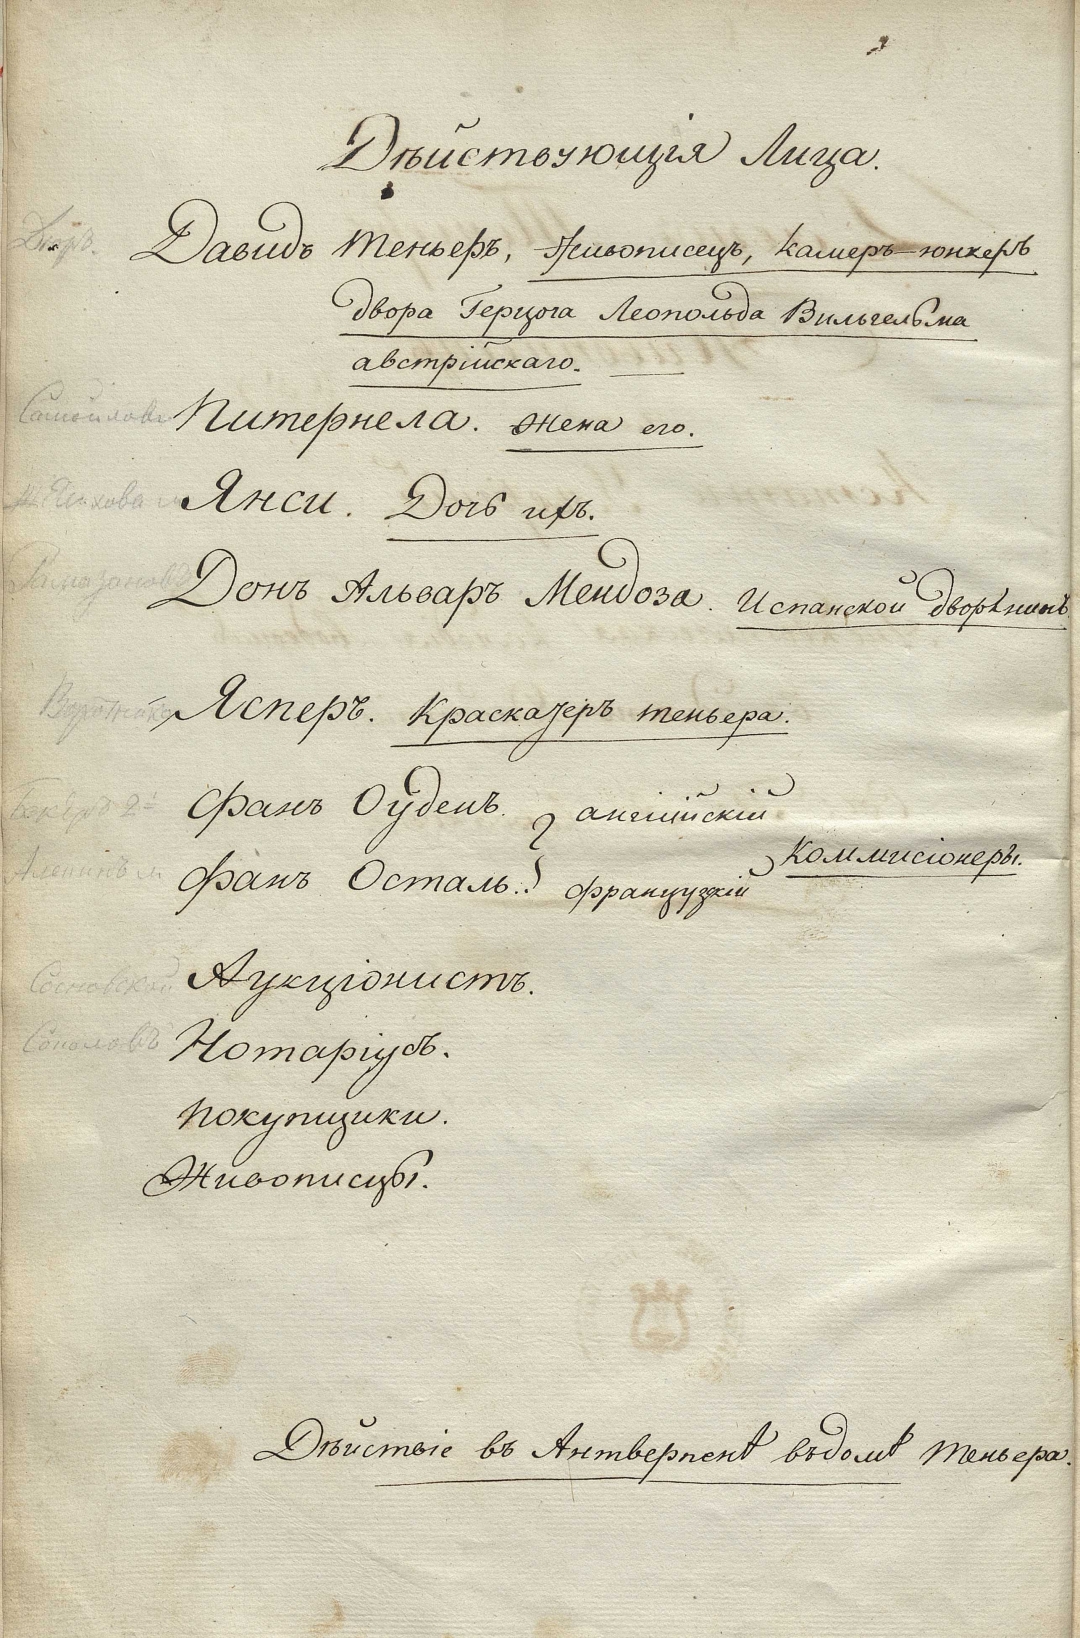 Дѣйствующія Лица.
Давидъ Теньеръ, Живописецъ, камеръ-юнкеръ
двора Герцога Леопольда Вильгельма
австрійскаго.
Самойлова Питернела. Жена его.
Янси. Дочь ихъ.
Рамазановъ Донъ Альваръ Мендоза. Испанской дворѣнинъ
Ясперъ. Краскатеръ теньера.
Фанъ Оуденъ. англійскій
Коммисіонеры.
Фанъ Осталь. французскій
Сосновской Аукціонистъ.
Соколовъ Нотаріусъ.
Покупщики.
Живописцы.
Дѣйствіе въ Антверпенѣ въ домѣ Теньера.